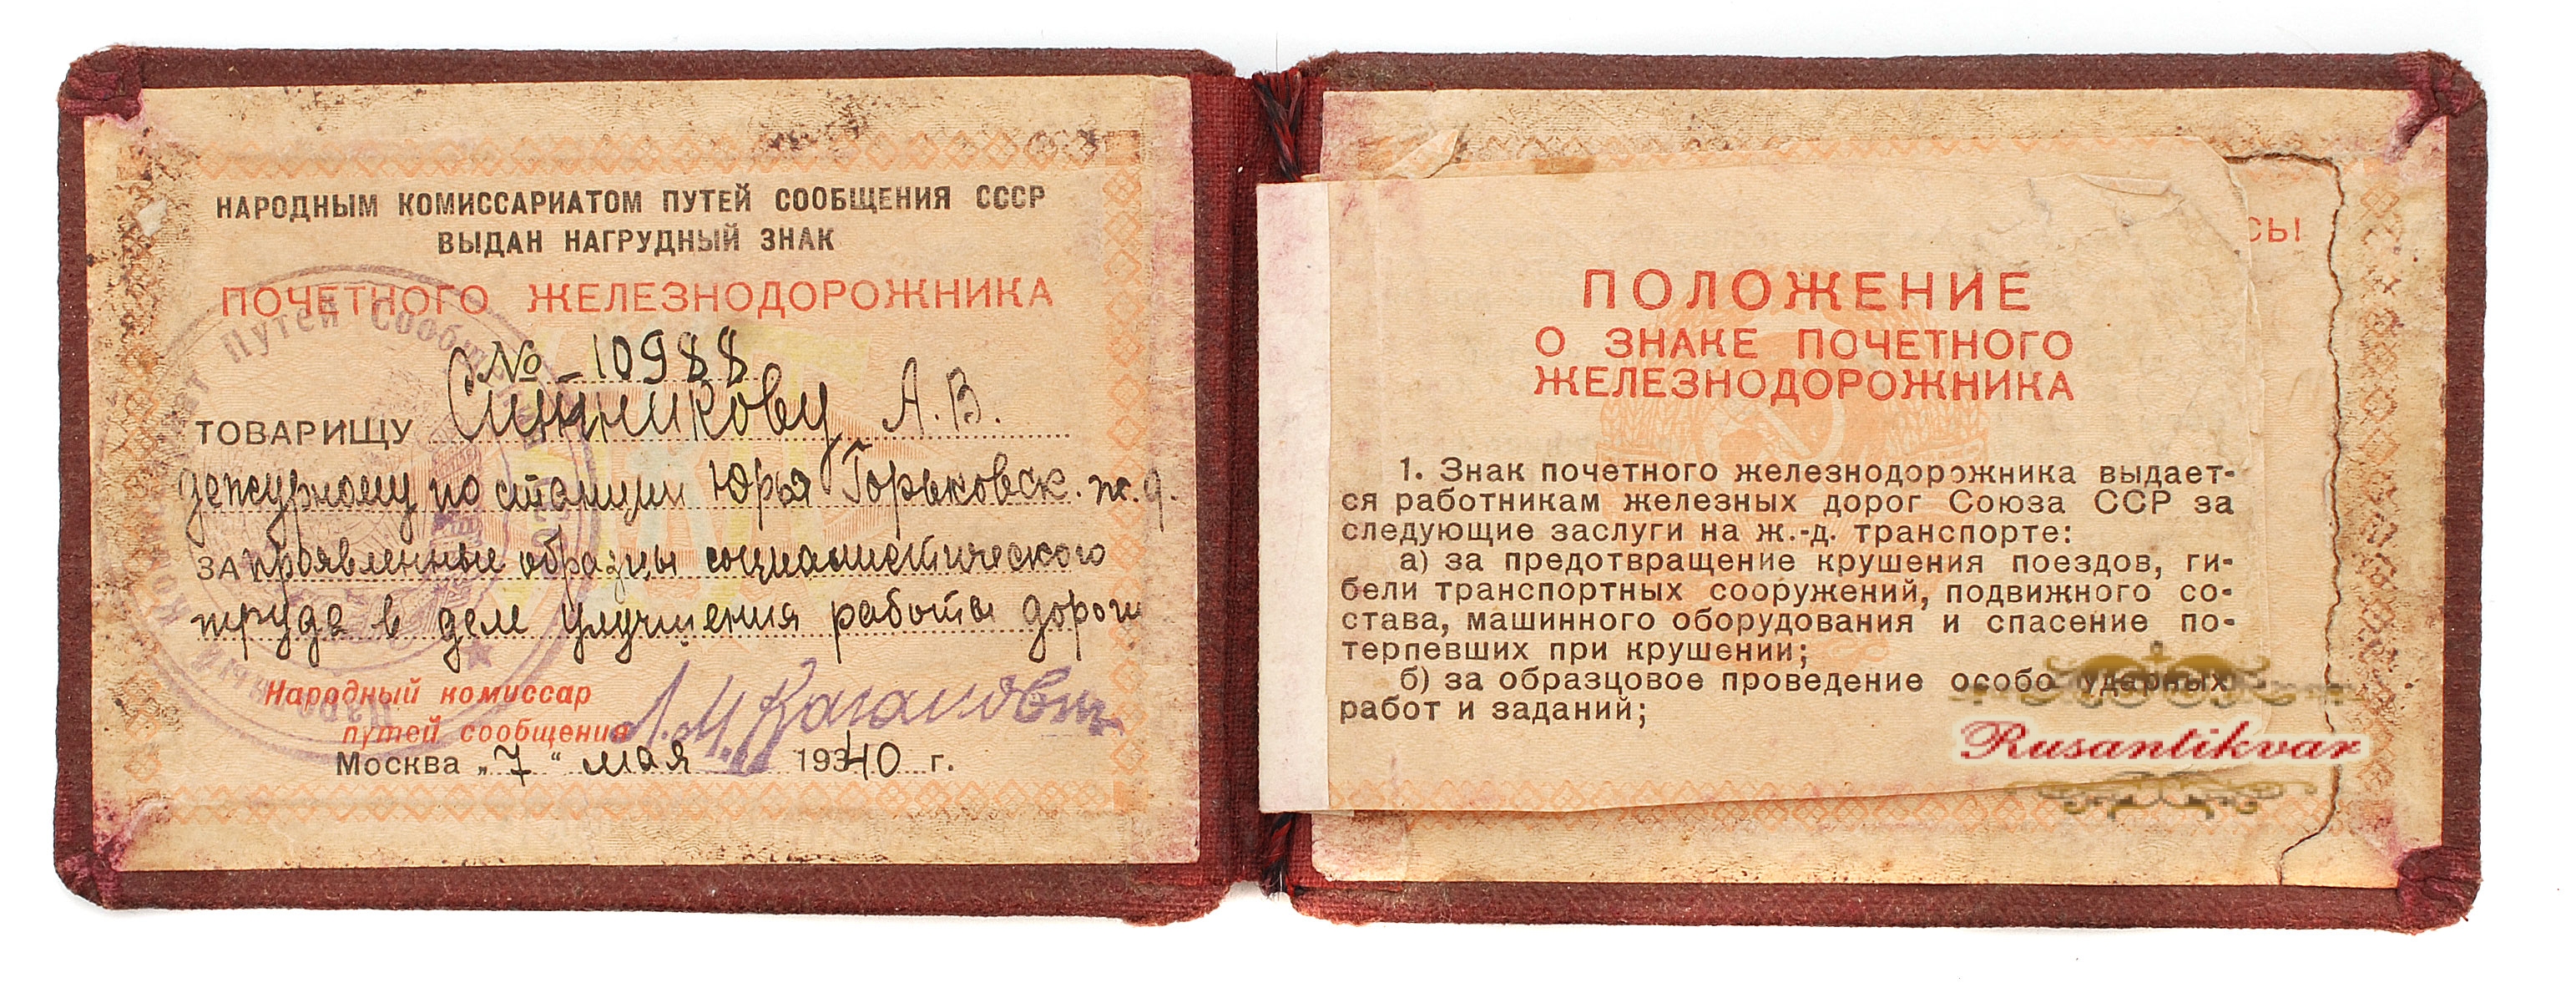 НАРОДНЫМ КОМИССАРИАТОМ ПУТЕЙ СООБЩЕНИЯ СССР
ВЫДАН НАГРУДНЫЙ ЗНАК
ПОЧЕТНОГО ЖЕЛЕЗНОДОРОЖНИКА
№ - 10988
ТОВАРИЩУ Синникову А.В.
дежурному по станции Юрья Горьковск. ж.д.
ЗА проявленные образцы социалистического
труда в деле улучшения работы дороги
Народный комиссар
путей сообщения Л.М. Каганович
Москва „7“ мая 1940 г.
Народный Комиссариат Путей Сообщ
СЬ!
ПОЛОЖЕНИЕ
О ЗНАКЕ ПОЧЕТНОГО
ЖЕЛЕЗНОДОРОЖНИКА
1. Знак почетного железнодорожника выдает-
ся работникам железных дорог Союза ССР за
следующие заслуги на ж.-д. транспорте:
а) за предотвращение крушения поездов, ги-
бели транспортных сооружений, подвижного со-
става, машинного оборудования и спасение по-
терпевших при крушении;
б) за образцовое проведение особо ударных
работ и заданий;
Rusantikvar